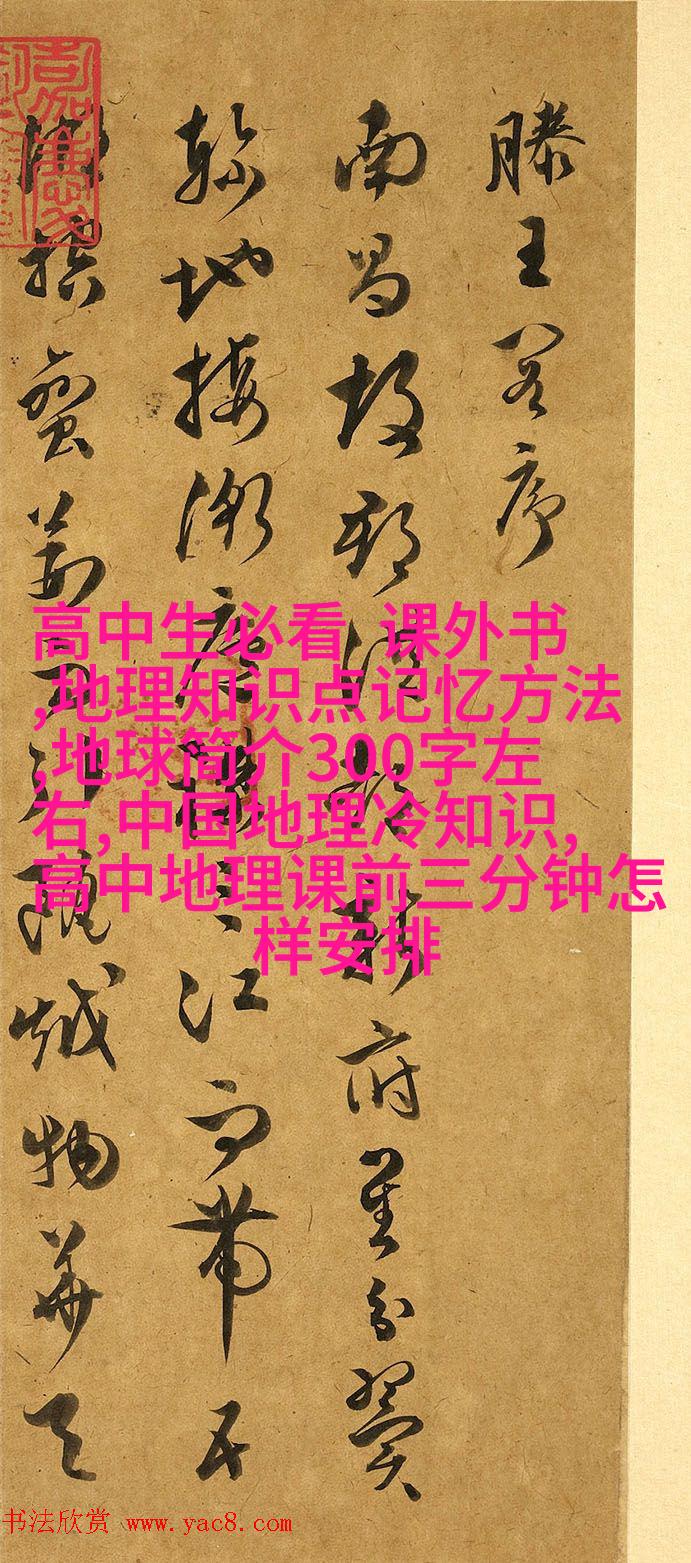 滕王閣序
南昌故郡洪都新府星分翼
軫地接衡廬襟三江而帶五
湖控蠻荊而引甌越物華天
高中生必看 课外书
,地理知识点记忆方法
,地球简介300字左
右,中国地理冷知识,
高中地理课前三分钟怎
样安排
书法欣赏 www.yac8.com